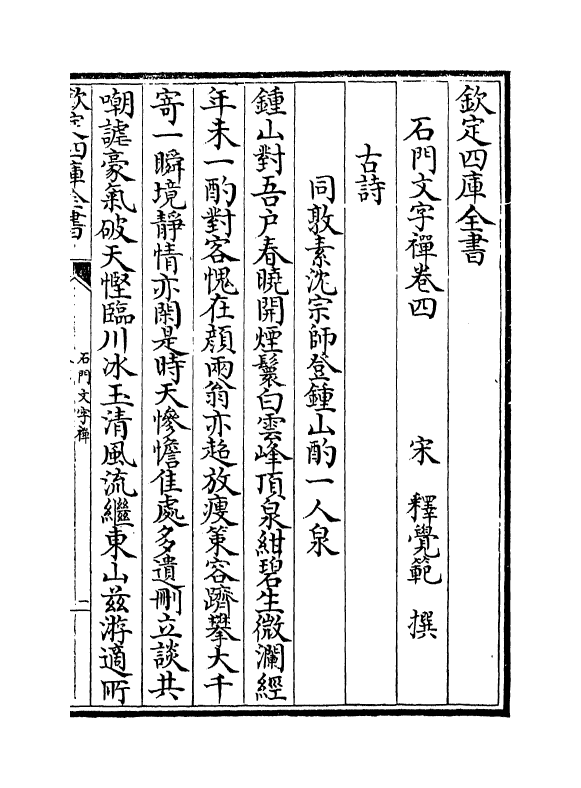 欽定四庫全書
石門文字禪卷四
宋 釋覺範 撰
古詩
同敦素沈宗師登鍾山酌一人泉
鍾山對吾户春曉開煙鬟白雲峰頂泉紺碧生微瀾經
年未一酌對客愧在顔兩翁亦超放瘦策容躋攀大千
寄一瞬境靜情亦閑是時天慘憺佳處多遺刪立談共
嘲謔豪氣破天慳臨川冰玉清風流繼東山兹游適所
欽定四庫全書
石門文字禪